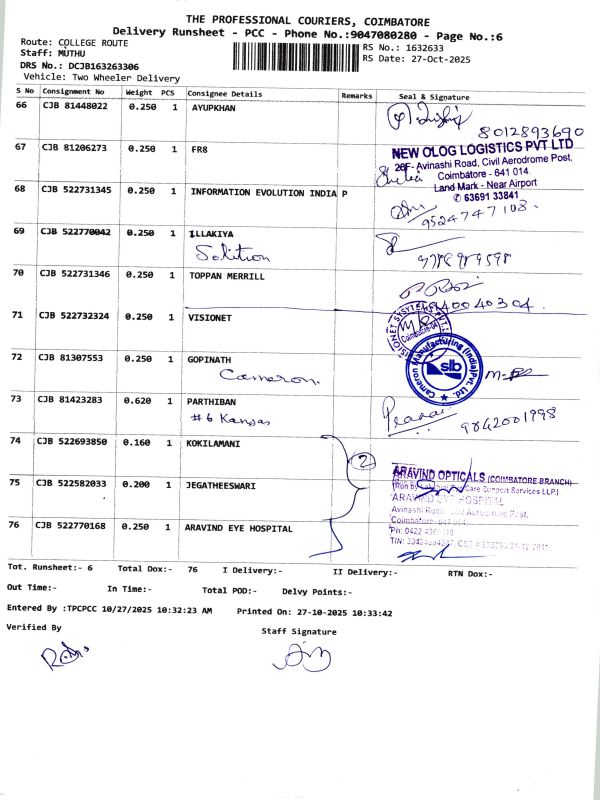 THE PROFESSIONAL COURIERS, COIMBATORE
Delivery Runsheet - PCC - Phone No.:9047080280 - Page No.:6
Route: COLLEGE ROUTE
RS No.: 1632633
Staff: MUTHU
RS Date: 27-Oct-2025
DRS No.: DCJB163263306
Vehicle: Two Wheeler Delivery
S No Consignment No Weight PCS Consignee Details Remarks Seal & Signature
66 CJB 81448022 0.250 1 AYUPKHAN
8012893690
67 CJB 81206273 0.250 1 FR8
NEW OLOG LOGISTICS PVT LTD
26F- Avinashi Road, Civil Aerodrome Post,
Coimbatore - 641 014.
Land Mark - Near Airport
✆ 63691 33841
68 CJB 522731345 0.250 1 INFORMATION EVOLUTION INDIA P
9524747108.
69 CJB 522770042 0.250 1 ILLAKIYA
Solition
70 CJB 522731346 0.250 1 TOPPAN MERRILL
71 CJB 522732324 0.250 1 VISIONET
72 CJB 81307553 0.250 1 GOPINATH
Cameron.
Cameron Manufacturing (India) Pvt. Ltd.
slb
73 CJB 81423283 0.620 1 PARTHIBAN
#6 Kansas
9842001998
74 CJB 522693850 0.160 1 KOKILAMANI
2
ARAVIND OPTICALS (COIMBATORE BRANCH)
75 CJB 522582033 0.200 1 JEGATHEESWARI
Avinashi Road, Civil Aerodrome Post,
76 CJB 522770168 0.250 1 ARAVIND EYE HOSPITAL
Tot. Runsheet:- 6 Total Dox:- 76 I Delivery:- II Delivery:- RTN Dox:-
Out Time:- In Time:- Total POD:- Delvy Points:-
Entered By :TPCPCC 10/27/2025 10:32:23 AM Printed On: 27-10-2025 10:33:42
Verified By
Staff Signature